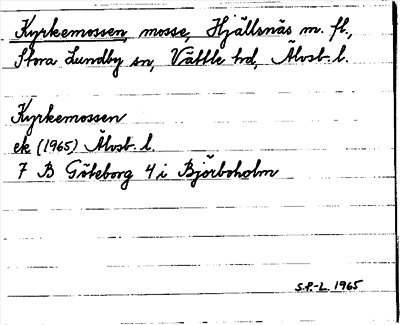 Kyrkemossen, mosse, Hjällsnäs m. fl.,
Stora Lundby sn, Vättle hd, Älvsb. l.
Kyrkemossen
ek (1965) Älvsb. l.
7 B Göteborg 4 i Björboholm
S.P.-L. 1965